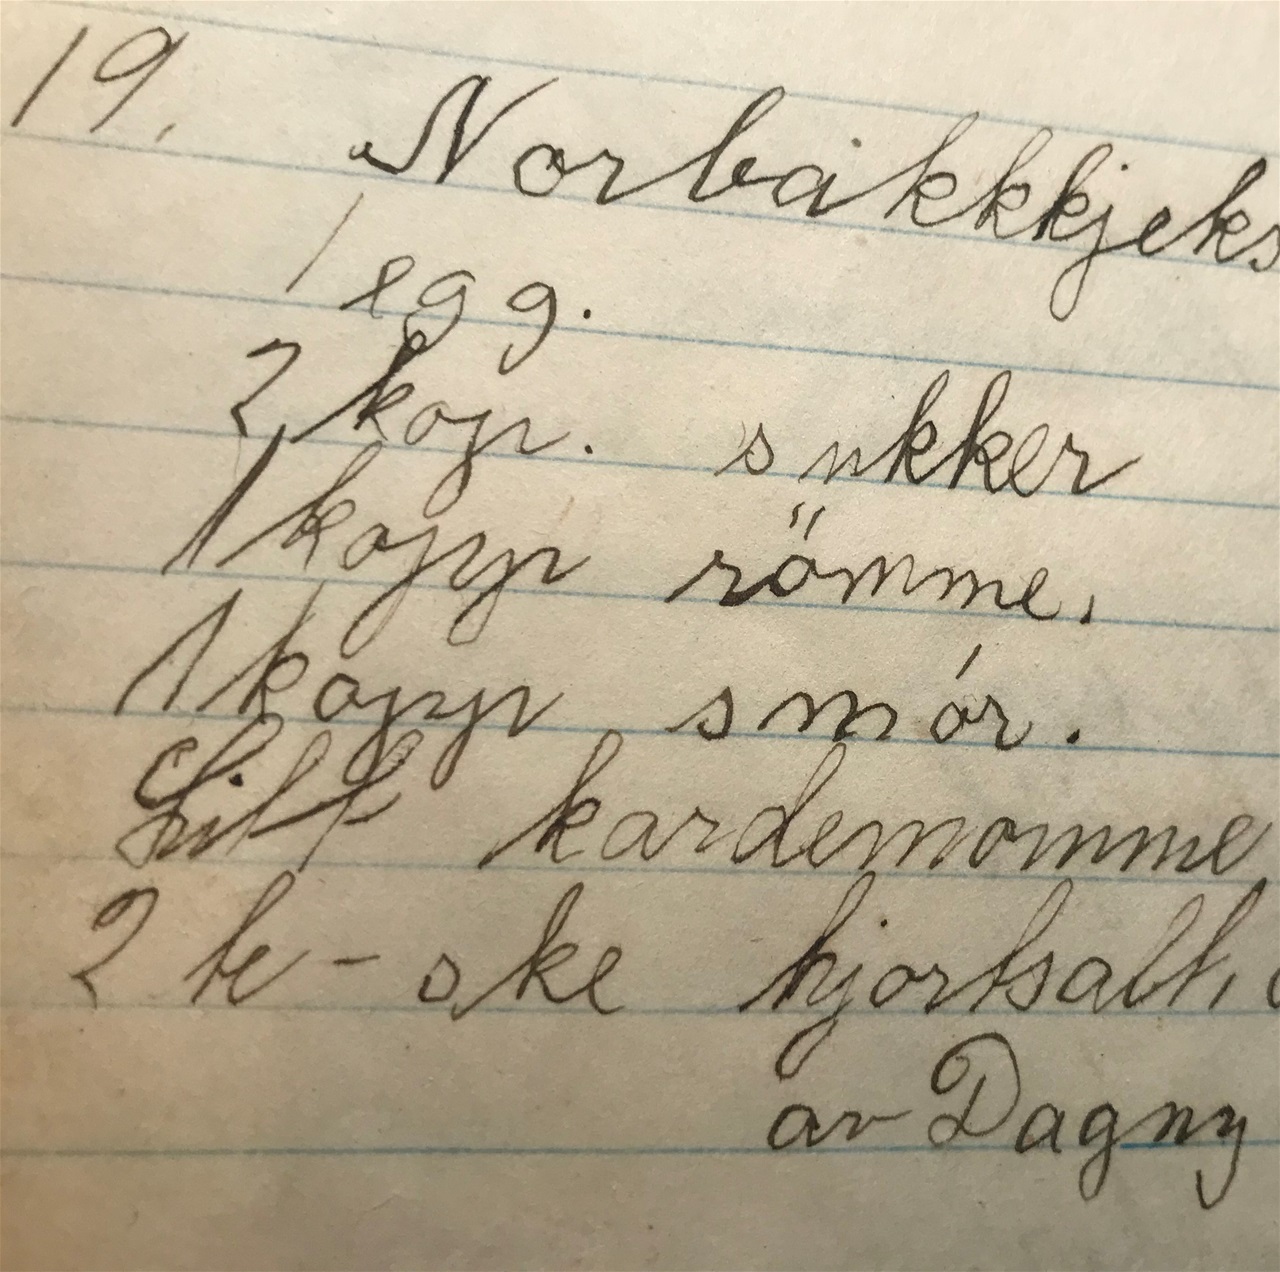 19. Norbakkkjeks
1 egg.
2 kop. sukker
1 kopp römme.
1 kopp smór.
Litt kardemomme
2 te-ske hjortsalt.
av Dagny